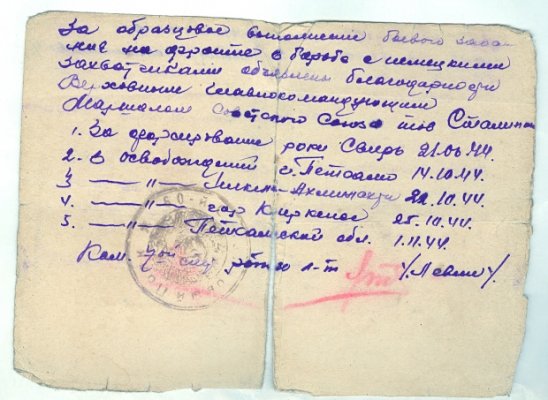 За образцовое выполнение боевого зада-
ния на фронте в борьбе с немецкими
захватчиками объявлены благодарности
Верховным Главнокомандующим
Маршалом Советского Союза тов Сталиным
1. За форсирование реки Свирь 21.06.44.
2. В освобождений г. Петсамо 14.10.44.
3 —— " —— 22.10.44.
4. —— " —— гор Киркенес 25.10.44.
5. —— " —— Петсамской обл. 1.11.44.
Ком. роты л-т